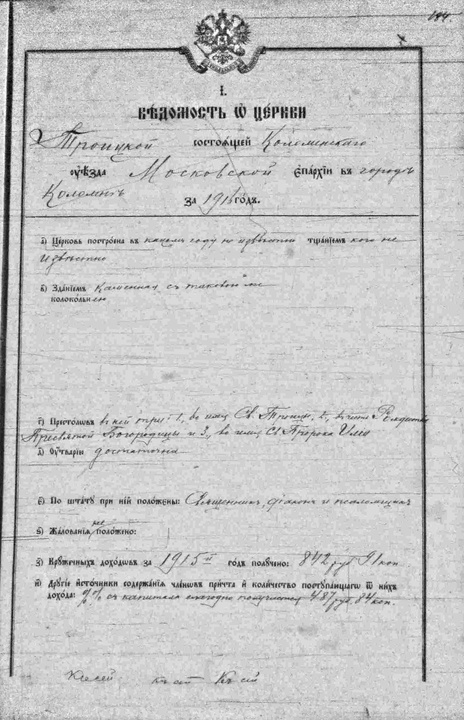 184.
I.
ВѢДОМОСТЬ Ѿ ЦЕРКВИ
Троицкой состоѧщей Коломенскаго
оуѣзда Московской Епархіи въ городѣ
Коломнѣ
за 191 годъ.
а) Церковь построена въ какомъ году не извѣстно тщаніемъ кого не
извѣстно
в) Зданіемъ каменная съ таковой же
колокольнею
г) Престоловъ въ ней три: 1, во имя Св. Троицы, 2, въ честь Рождества
Пресвятой Богородицы и 3, во имя Св. Пророка Иліи
д) Оутварію достаточна
є) По штатꙋ при ней положены: Священникъ, діаконъ и псаломщикъ
ѕ) Жалованія не положено:
з) Крꙋжечныхъ доходовъ за 1915й годъ полꙋчено: 842 руб 91 коп.
и) Дрꙋгіе источники содержанія членовъ причта и количество постꙋпающаго Ѿ нихъ
дохода: % % съ капитала ежегодно получается 487 руб. 84 коп.